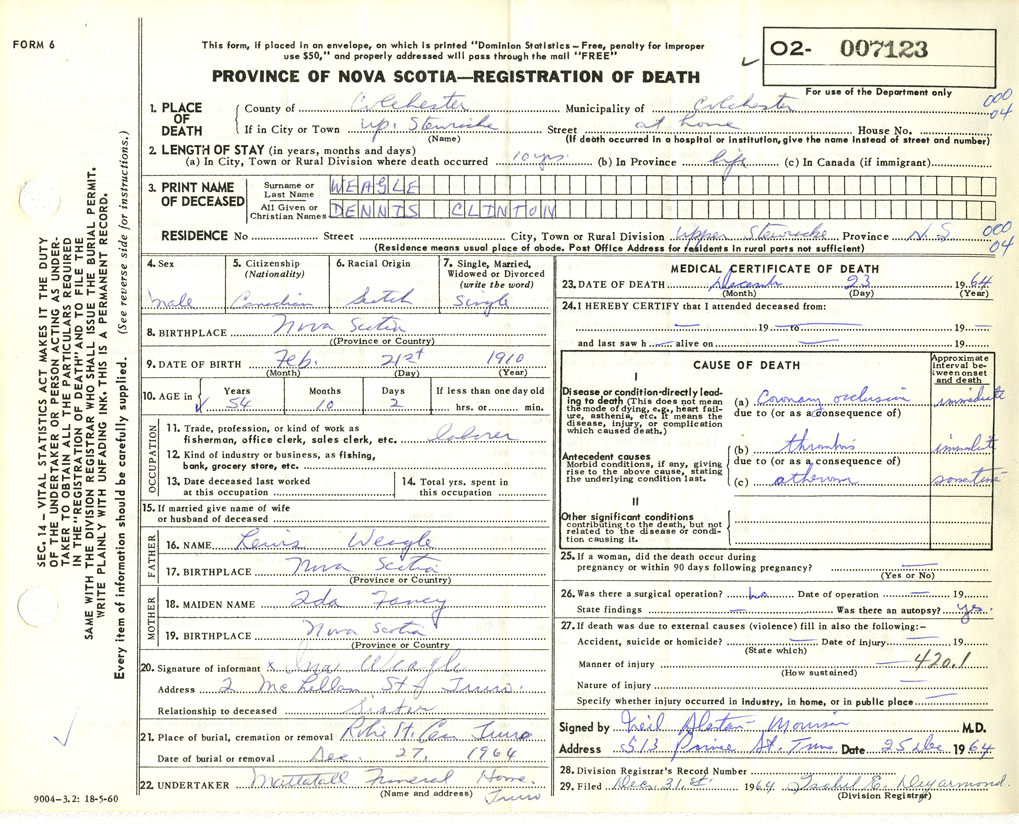 FORM 6
This form, if placed in an envelope, on which is printed "Dominion Statistics – Free, penalty for improper
use $50," and properly addressed will pass through the mail "FREE"
O2- 007123
PROVINCE OF NOVA SCOTIA—REGISTRATION OF DEATH
For use of the Department only
SEC. 14 – VITAL STATISTICS ACT MAKES IT THE DUTY
OF THE UNDERTAKER OR PERSON ACTING AS UNDER-
TAKER TO OBTAIN ALL THE PARTICULARS REQUIRED
IN THE "REGISTRATION OF DEATH" AND TO FILE THE
SAME WITH THE DIVISION REGISTRAR WHO SHALL ISSUE THE BURIAL PERMIT.
WRITE PLAINLY WITH UNFADING INK. THIS IS A PERMANENT RECORD.
Every item of information should be carefully supplied. (See reverse side for instructions.)
1. PLACE OF DEATH
County of Colchester Municipality of Colchester 000
04
If in City or Town Up. Stewiacke Street at home House No.
(Name) (If death occurred in a hospital or institution, give the name instead of street and number)
2. LENGTH OF STAY (in years, months and days)
(a) In City, Town or Rural Division where death occurred 10 yrs (b) In Province life (c) In Canada (if immigrant)
3. PRINT NAME OF DECEASED
Surname or Last Name WEAGLE
All Given or Christian Names DENNIS CLINTON
RESIDENCE No Street City, Town or Rural Division Upper Stewiacke Province N.S 000
04
(Residence means usual place of abode. Post Office Address for residents in rural parts not sufficient)
4. Sex 5. Citizenship (Nationality) 6. Racial Origin 7. Single, Married, Widowed or Divorced (write the word)
Male Canadian Scotch Single
8. BIRTHPLACE Nova Scotia
(Province or Country)
9. DATE OF BIRTH Feb. 21st 1910
(Month) (Day) (Year)
10. AGE in Years Months Days If less than one day old
54 10 2 hrs. or min.
OCCUPATION
11. Trade, profession, or kind of work as
fisherman, office clerk, sales clerk, etc. laborer
12. Kind of industry or business, as fishing,
bank, grocery store, etc.
13. Date deceased last worked at this occupation 14. Total yrs. spent in this occupation
15. If married give name of wife
or husband of deceased
FATHER
16. NAME Lewis Weagle
17. BIRTHPLACE Nova Scotia
(Province or Country)
MOTHER
18. MAIDEN NAME Ada Fancy
19. BIRTHPLACE Nova Scotia
(Province or Country)
20. Signature of informant x Ina Weagle
Address 2 McLellan St Truro.
Relationship to deceased Sister
21. Place of burial, cremation or removal Robie St. Cem Truro
Date of burial or removal Dec. 27, 1964
22. UNDERTAKER Mattatall Funeral Home.
(Name and address) Truro
9004–3.2: 18-5-60
MEDICAL CERTIFICATE OF DEATH
23. DATE OF DEATH December 23 1964
(Month) (Day) (Year)
24. I HEREBY CERTIFY that I attended deceased from:
— 19 — to — 19 —
and last saw h — alive on — 19
CAUSE OF DEATH
Approximate interval between onset and death
I
Disease or condition directly lead-
ing to death (This does not mean
the mode of dying, e.g., heart fail-
ure, asthenia, etc. It means the
disease, injury, or complication
which caused death.)
(a) Coronary occlusion immediate
due to (or as a consequence of)
Antecedent causes
Morbid conditions, if any, giving
rise to the above cause, stating
the underlying condition last.
(b) thrombus immediate
due to (or as a consequence of)
(c) atheroma sometime
II
Other significant conditions
contributing to the death, but not
related to the disease or condi-
tion causing it.
25. If a woman, did the death occur during
pregnancy or within 90 days following pregnancy? —
(Yes or No)
26. Was there a surgical operation? no Date of operation — 19
State findings — Was there an autopsy? yes.
27. If death was due to external causes (violence) fill in also the following:–
Accident, suicide or homicide? — Date of injury — 19
(State which)
Manner of injury — 420.1
(How sustained)
Nature of injury —
Specify whether injury occurred in industry, in home, or in public place —
Signed by Neil Alastair Morrison M.D.
Address 513 Prince St. Truro Date 25 Dec 1964
28. Division Registrar's Record Number
29. Filed Dec. 31.st 1964 Isabel E. Deyarmond
(Division Registrar)